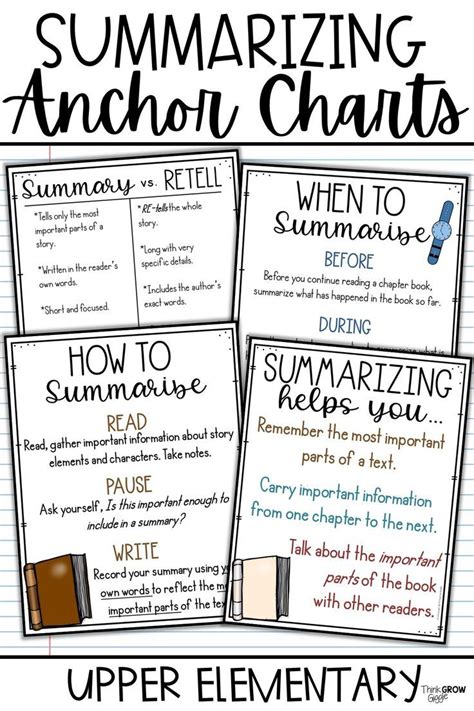 SUMMARIZING
Anchor Charts
Summary vs. RETELL
*Tells only the most
important parts of a
story.
*Written in the reader's
own words.
*Short and focused.
*RE-tells the whole
story.
*Long with very
specific details.
*Includes the author's
exact words.
WHEN TO
Summarise
BEFORE
Before you continue reading a chapter book,
summarize what has happened in the book so far.
DURING
HOW TO
Summarise
READ
Read, gather important information about story
elements and characters. Take notes.
PAUSE
Ask yourself, Is this important enough to
include in a summary?
WRITE
Record your summary using
own words to reflect the
important parts of the
SUMMARIZING
helps you...
Remember the most important
parts of a text.
Carry important information
from one chapter to the next.
Talk about the important
parts of the book
with other readers.
UPPER ELEMENTARY
Think GROW
Giggle